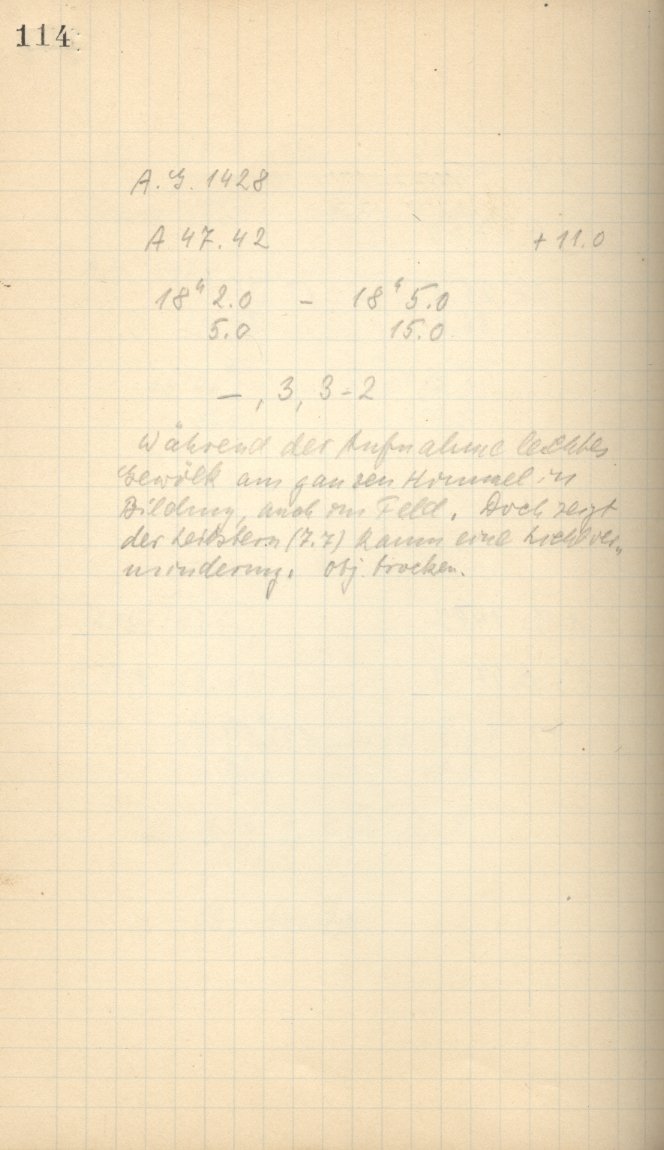 114
A.G. 1428
A 47.42 + 11.0
18ʰ 2.0 – 18ʰ 5.0
5.0 15.0
–, 3, 3-2
Während der Aufnahme leichtes
Gewölk am ganzen Himmel in
Bildung, auch im Feld. Doch zeigt
der Leitstern (7.7) kaum eine Lichtver„
minderung. Obj. trocken.